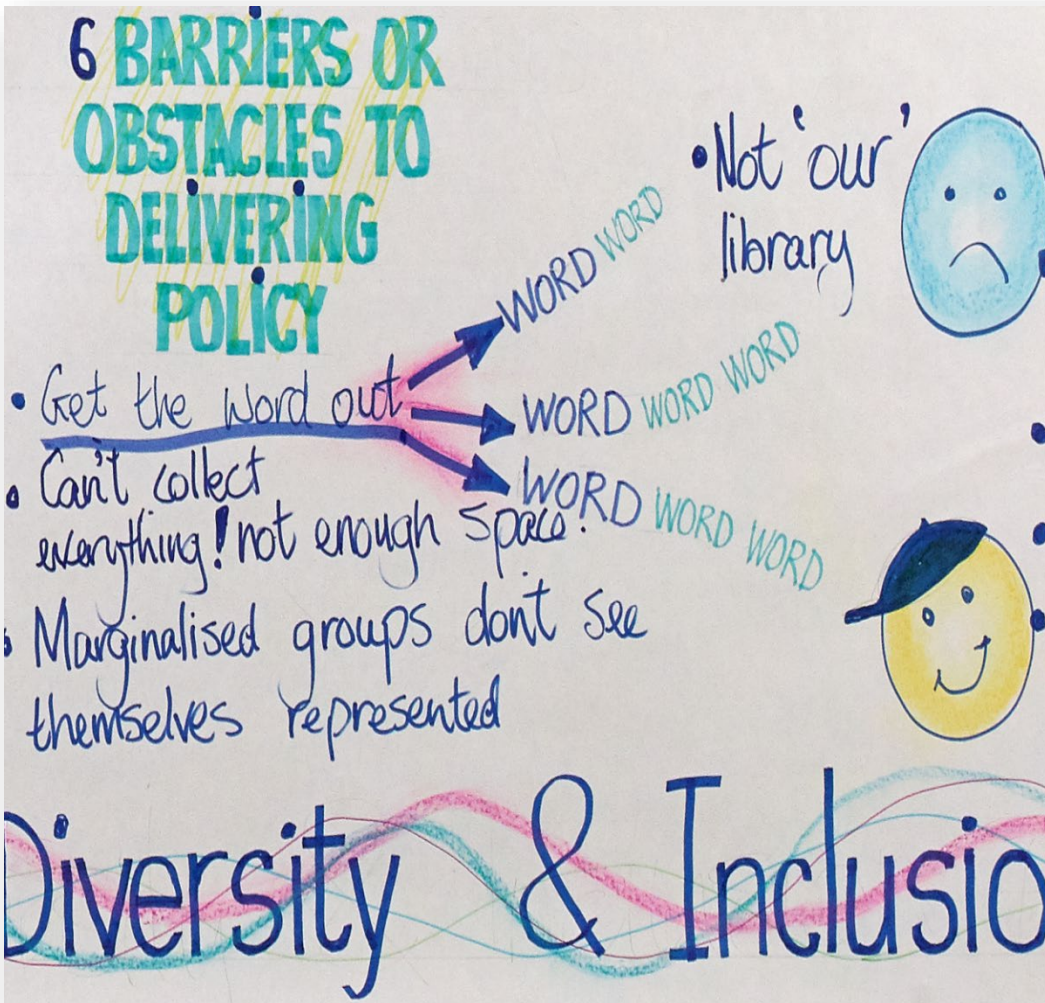 6 BARRIERS OR
OBSTACLES TO
DELIVERING
POLICY
• Get the word out
WORD WORD
WORD WORD WORD
WORD WORD WORD
• Can't collect
everything! not enough space.
• Marginalised groups don't see
themselves represented
• Not 'our'
library
Diversity & Inclusio